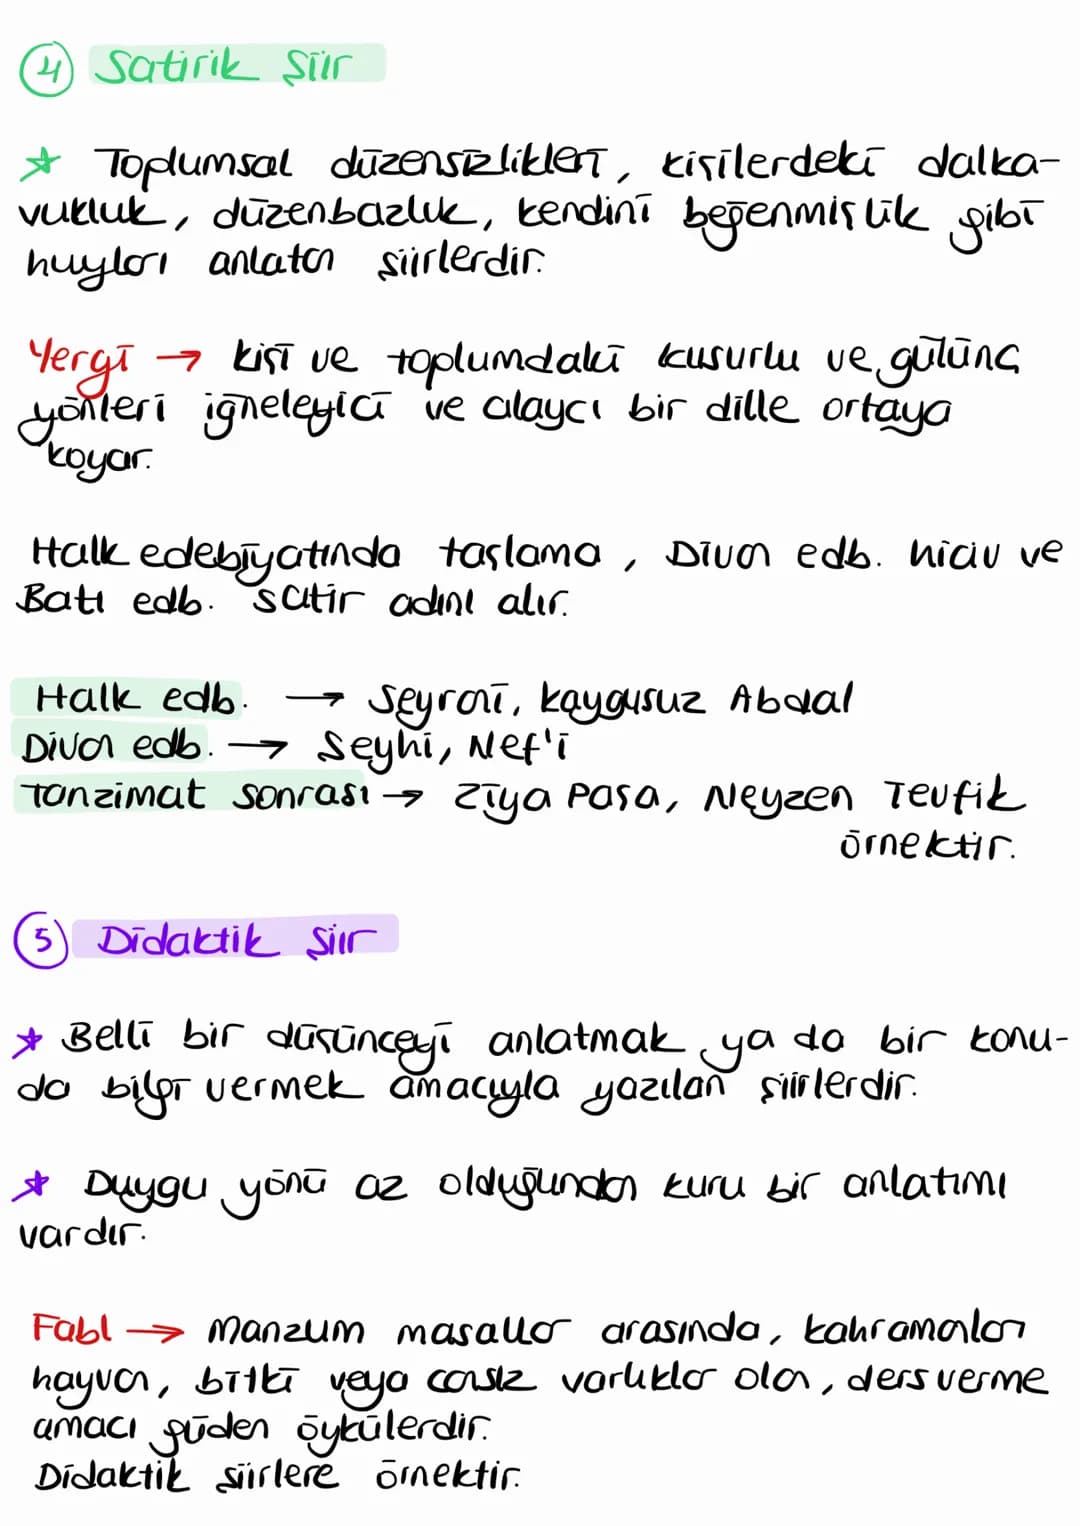 4 Satirik Şiir
★ Toplumsal düzensizlikleri, kişilerdeki dalka-
vukluk, düzenbazlık, kendini beğenmişlik gibi
huyları anlatan şiirlerdir.
Yergi → Kişi ve toplumdaki kusurlu ve gülünç
yönleri iğneleyici ve alaycı bir dille ortaya
koyar.
Halk edebiyatında taşlama, Divan edb. hiciv ve
Batı edb. satir adını alır.
Halk edb. → Seyrani, Kaygusuz Abdal
Divan edb. → Şeyhi, Nef'i
Tanzimat sonrası → Ziya Paşa, Neyzen Tevfik
örnektir.
5 Didaktik Şiir
★ Belli bir düşünceyi anlatmak ya da bir konu-
da bilgi vermek amacıyla yazılan şiirlerdir.
★ Duygu yönü az olduğundan kuru bir anlatımı
vardır.
Fabl → Manzum masallar arasında, kahramanları
hayvan, bitki veya cansız varlıklar olan, ders verme
amacı güden öykülerdir.
Didaktik şiirlere örnektir.